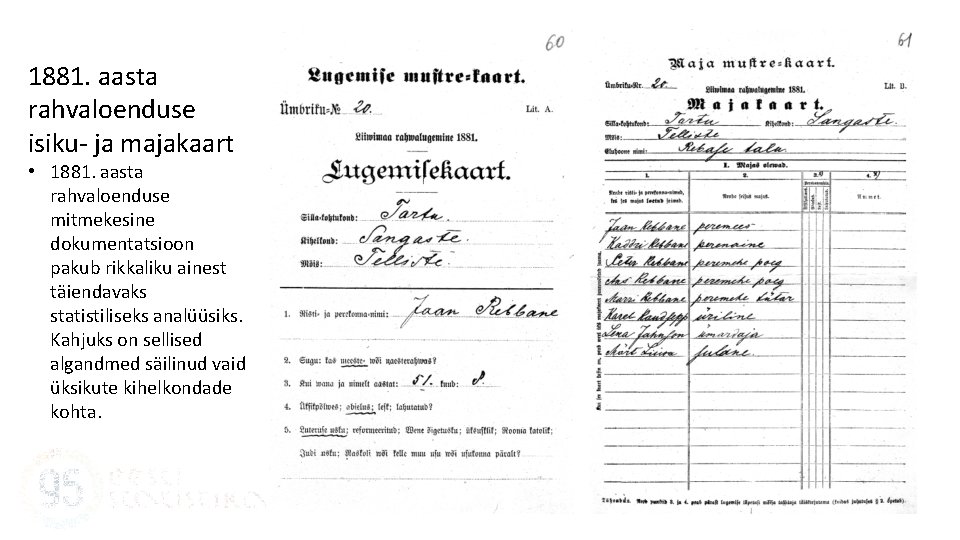 1881. aasta
rahvaloenduse
isiku- ja majakaart
• 1881. aasta
rahvaloenduse
mitmekesine
dokumentatsioon
pakub rikkaliku ainest
täiendavaks
statistiliseks analüüsiks.
Kahjuks on sellised
algandmed säilinud vaid
üksikute kihelkondade
kohta.
95 EESTI
60
Lugemise mustre-kaart.
Ümbriku-№ 20. Lit. A.
Liiwimaa rahwalugemine 1881.
Lugemisekaart.
Silla-kohtukond: Tartu.
Kihelkond: Sangaste.
Mõis: Telliste
1. Risti- ja perekonna-nimi: Jaan Rebbane
2. Sugu: kas meeste- wõi naesterahwas?
3. Kui wana ja nimelt aastat: 51. kuud: 8.
4. Üksikpõlwes; abielus; lesk; lahutatud?
5. Luteruse usku; reformeeritud; Wene õigeusku; üksusklik; Rooma katolik;
Judi usku; Raskoli wõi kelle muu usu wõi usukonna päralt?
61
Maja mustre-kaart.
Ümbriku-Nr. 20. Liiwimaa rahwalugemine 1881. Lit. D.
Majakaart.
Silla-kohtukond: Tartu Kihelkond: Sangaste.
Mõis: Telliste
Eluhoone nimi: Rebase talu
1. Majas olewad.
1. 2. 3. 4.
Nende risti- ja perekonna-nimed, kes majas loetud saiwad. Nende seisus majas. Ammet.
Jaan Rebbane peremees
Kaddri Rebbane perenaine
Peter Rebbane peremehe poeg
Ans Rebbane peremehe poeg
Marri Rebbane peremehe tütar
Karel Raudsepp üriline
Lena Jahnson ümardaja
Märt sulane.
Tähendus.